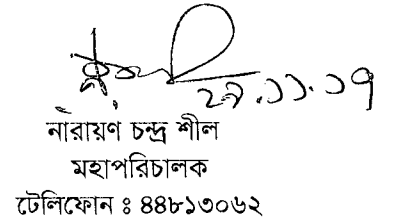 ২৯.১১.১৭
নারায়ণ চন্দ্র শীল
মহাপরিচালক
টেলিফোন ঃ ৪৪৮১৩০৬২